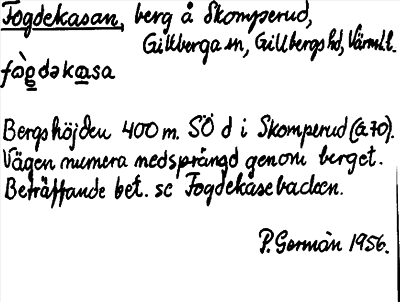 Fogdekasan, berg å Skomperud,
Gillberga sn, Gillbergs hd, Värml.
fògdəkasa
Bergshöjden 400 m. SÖ d i Skomperud (å 70).
Vägen numera nedsprängd genom berget.
Beträffande bet. se Fogdekasebacken.
P. Germån 1956.